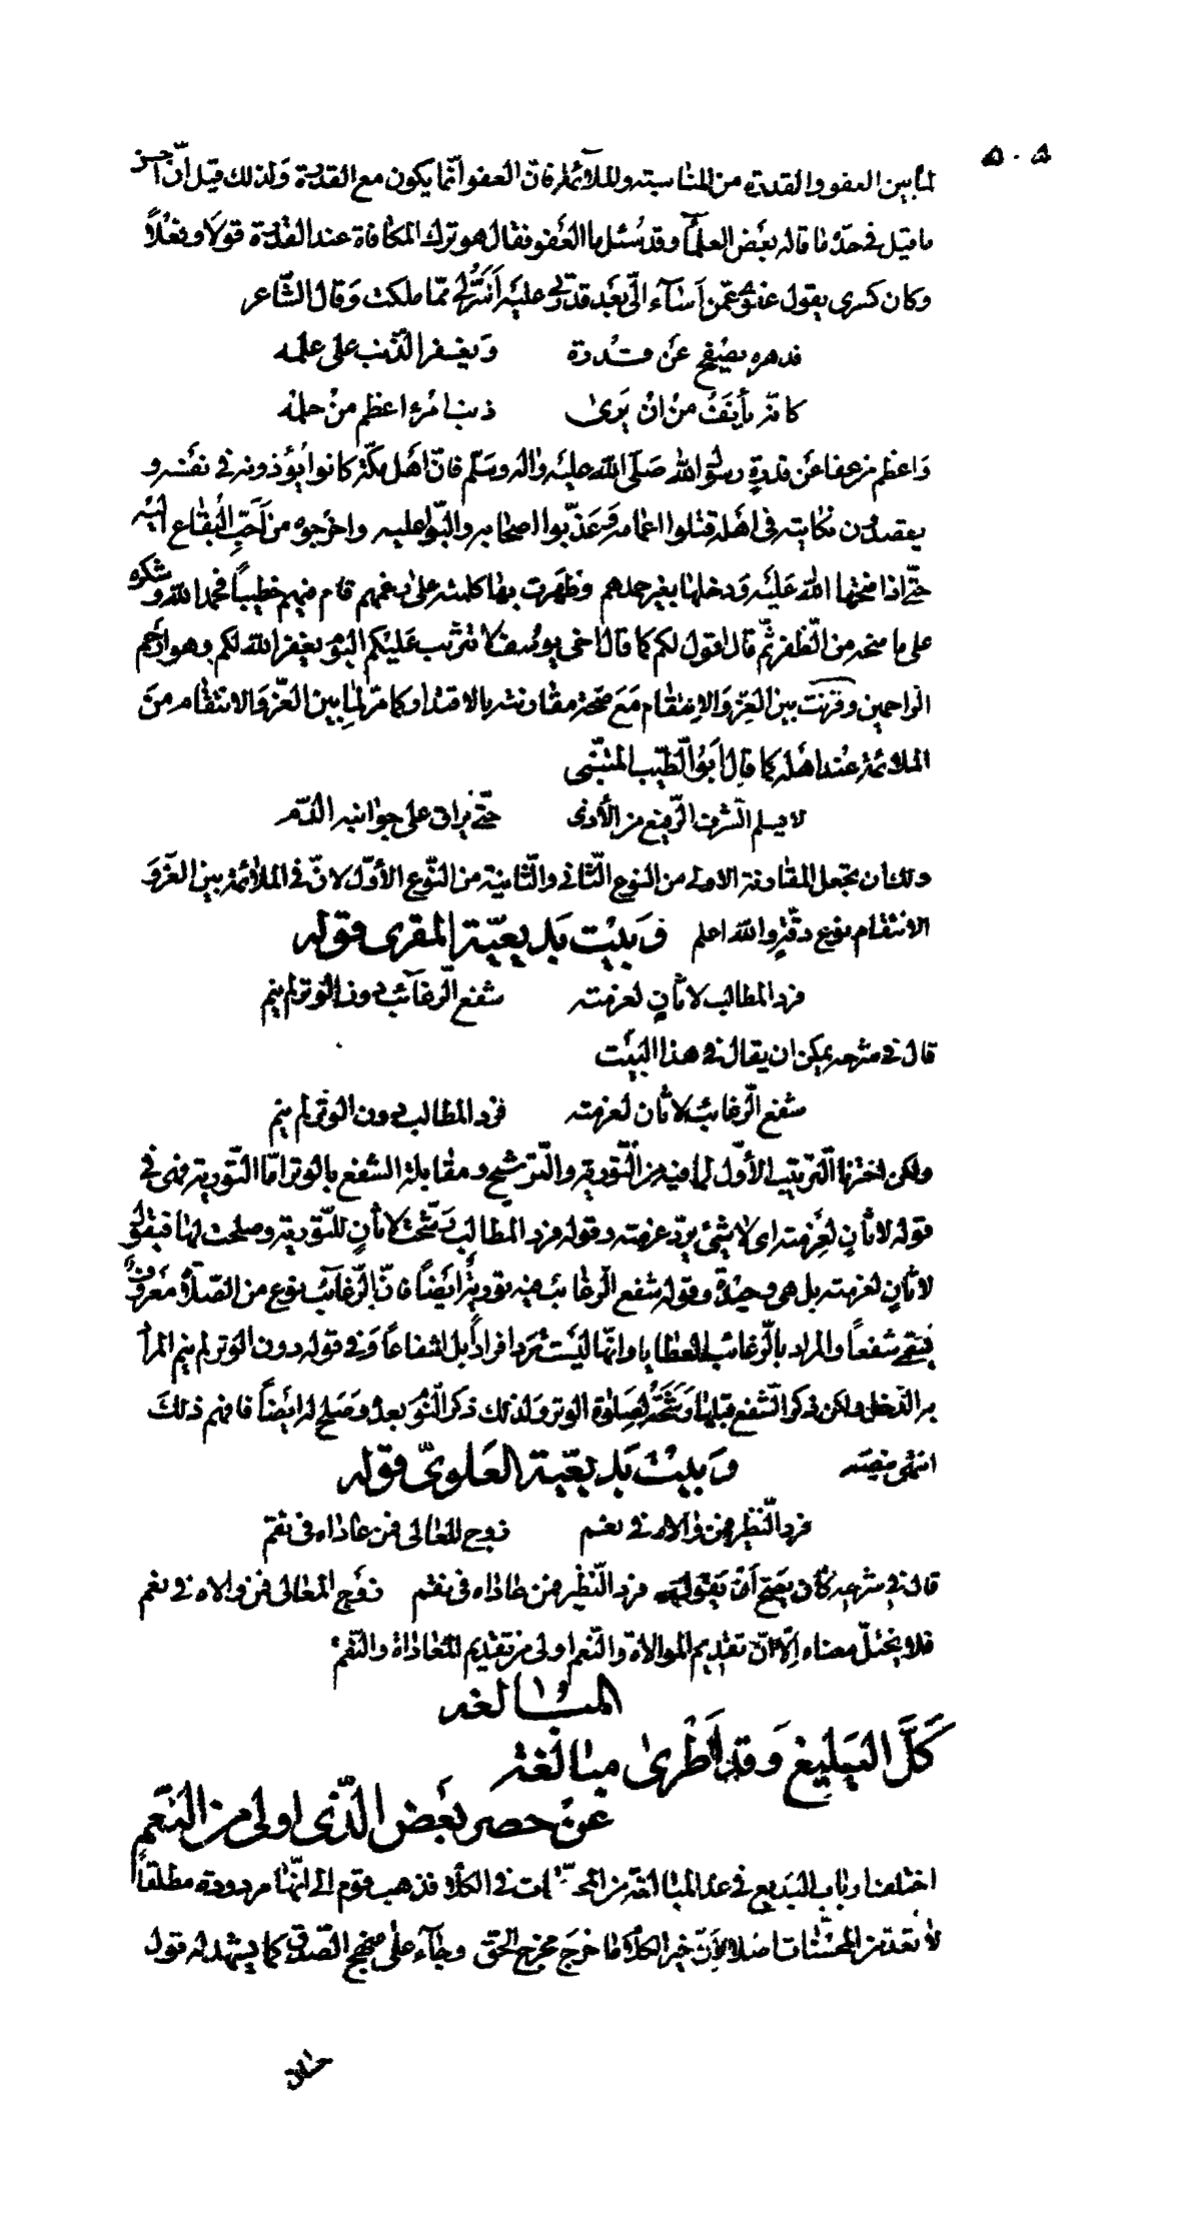 ٥٠٨
لما بين العفو والقدرة من المناسبة والملائمة فان العفو انّما يكون مع القدرة وَلذلك قيل انّ احسن
ما قيل فى حدّه ما قاله بعَض العلمآء وقد سُئل ما العَفو فقال هو ترك المكافاة عند القدرة قولاً وفعْلاً
وكان كسرى يقول عفوى عمّن اَسَآء الىّ بعَد قدرتى عليَه اَسَرُّ لى ممّا ملكت وَقال الشّاعر
قد هره يصْفح عَن قُدرة وَيغفر الذّنب على علمه
كانّه يأنَفُ منْ انْ يَرىٰ ذنب امْرء اعظم منْ حلمه
وَاعظم من عفا عَن قدرةٍ رسُول الله صَلّى الله عليْه واٰله وسَلّم فانّ اهَل مكّة كانوا يُؤذونه فى نفَسه و
يقصدُون نكايته فى اهَله قتلوا اعمامه وَعَذّبوا اصحابه والّبوا عليه واخرجوه من اَحَبّ البُقاع اليْه
حتّى اذا فتحها الله عَليَه وَدخلها بغير حمدهم وَظهَرت بها كلمته على رغمهم قام فيهم خطيباً فحمد الله وَشكره
على ما منحه من الظفر ثمّ قال اقول لكم كما قال اخى يوسُف لا تثريب عَليْكم اليَوم يغفر الله لكم وهو ارحم
الراحمين وَقرنت بين العِزّ وَالانتقام مَعَ صحّة مقارنته بالاقتدار كما مرّ لما بين العزّ وَالانتقام منَ
الملائمة عنْد اهَله كما قال ابَوُ الطّيب المتنَبّى
لا يسلم الشرف الرّفيع من الأذى حتّى يراق على جوانبه الدّم
ولك ان تجَعل المقارنة الاولى من النوع الثّانى والثّانية من النّوع الأوّل لانّ فى الملائمة بين العزّ وَ
الانتقام نوع دقّةٍ والله اعلم وَبيْت بَديعيّة المقرى قوله
فرد المطالب لا ثانٍ لعزمته شفع الرّغآئب دون الوتر لم ينم
قال فى شرحه يمكن ان يقال فى هذا البَيْت
شفع الرّغائب لا ثان لعزمته فرد المطالب دون الوتر لم ينم
ولكن اخترنا التّرتيب الأوّل لما فيه من التّورية والتّرشيح ومقابلة الشفع بالوتر امّا التّورية فهى فى
قوله لا ثانٍ لعَزمته اى لا شىْء يردّ عزمته وقوله فرد المطالب رَشّحت لا ثانٍ للتّورية وصلحت لها فبقى
لا ثانٍ لعزمته بل هى وحيْدة وقوله شفع الرّغائب فيه توريةٌ ايَضاً فانّ الرّغآئب نوع من الصّلوة مَعْروف
فبقى شفعاً والمراد بالرّغائب العطايا وانّها ليَست تردا فراداً بل اشفاعاً وَفى قوله دون الوتر لم ينم المرا
به الذّحل ولكن ذكر الشّفع قبلها رَشّحَه لصَلوة الوتر وَلذلك ذكر النّوْم بعدْ وصَلح له ايَضاً فافهم ذلكَ
انتهى بنصّه وَبيْت بَديعيّة العَلوىّ قوله
فرد النّظير فمن والاه فى نعم زوج المعالى فمن عاداه فى نقم
قال فى شرحه كان يصّح اَن يَقول فرد النّظير فمن عاداه فى نقم زوَج المعالى فمن والاه فى نعم
فلا يختلّ معناه اِلّا انّ تقديم الموالاة والنّعم اولى من تقديم المعاداة والنقم
المبالغه
كَلَّ البَليغ وَقد اَطْرىٰ مبالغة
عنْ حصر بعَض الّذى اولى من النعم
اختلف ارباب البَديع فى عدّ المبالغة من المحسّنات فى الكلام فذهب قوم الى انّها مردودة مطلقاً
لا تعدّ من المحسّنات اصلا لانّ خير الكلام ما خرَج مخرج الحق وجآء على منهج الصّدق كما يشهد له قول
حسان